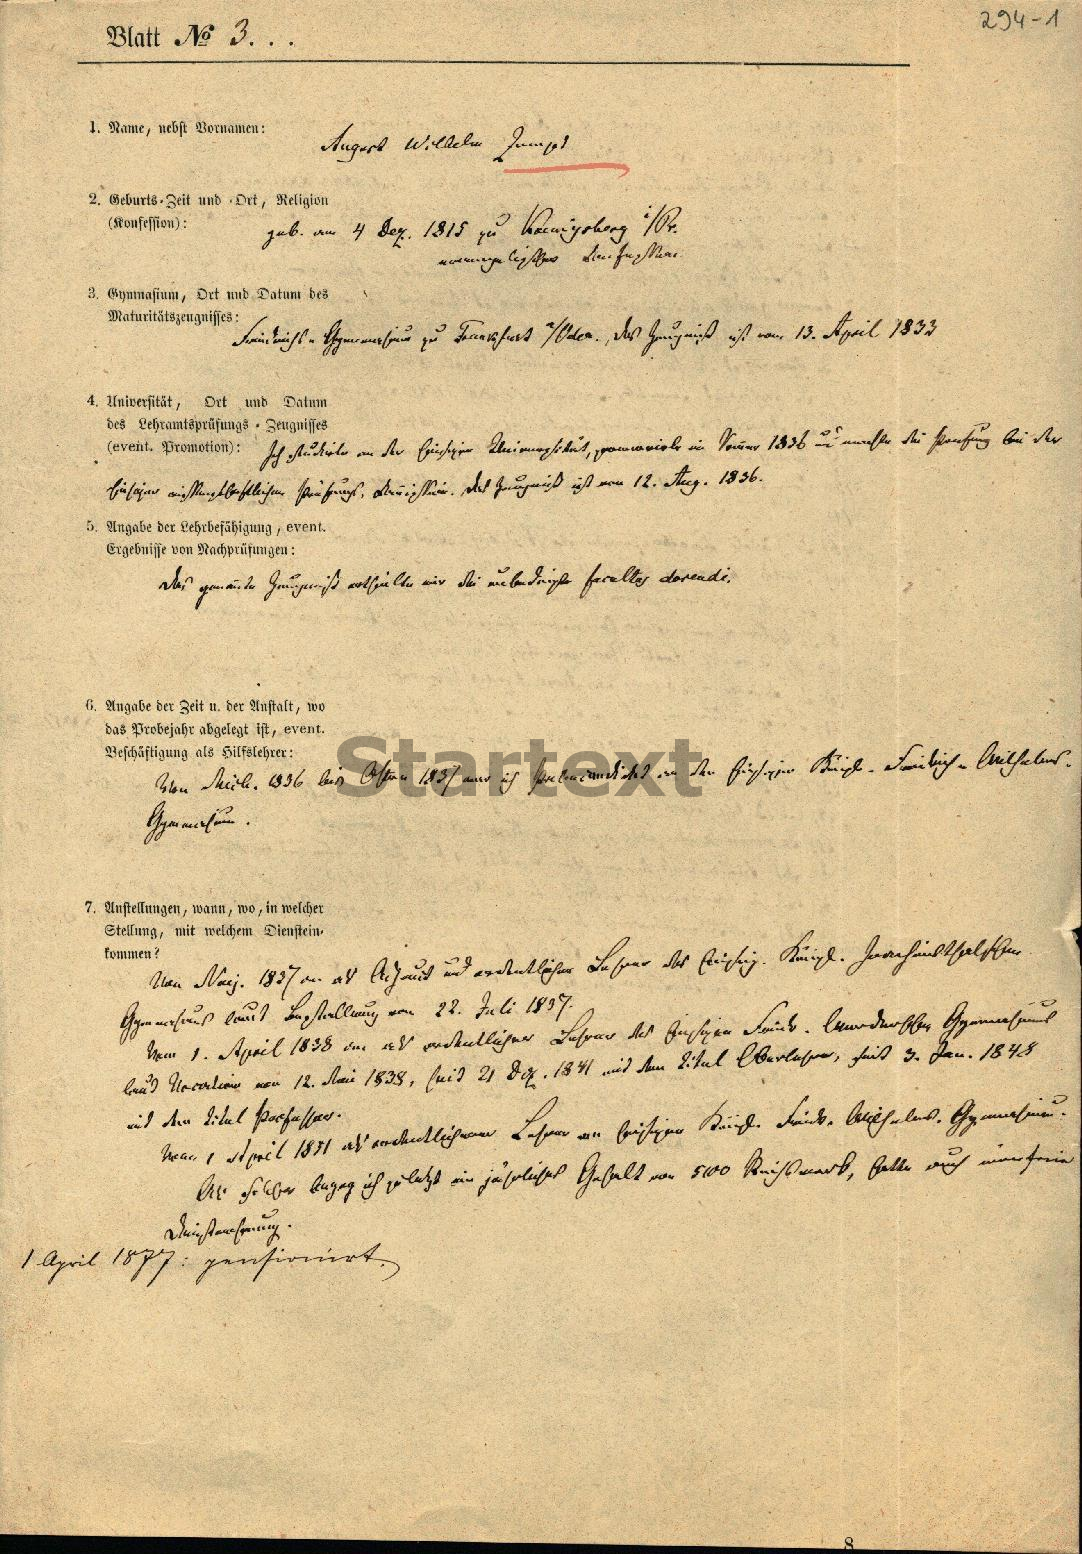 294-1
Blatt № 3...
1. Name, nebst Vornamen:
August Wilhelm Zumpt
2. Geburts-Zeit und -Ort, Religion
(Konfession):
geb. am 4 Dez. 1815 zu Koenigsberg i/Pr.
evangelischer Confession.
3. Gymnasium, Ort und Datum des
Maturitätszeugnisses:
Friedrichs-Gymnasium zu Frankfurt a/Oder. Das Zeugniß ist vom 13. April 1833
4. Universität, Ort und Datum
des Lehramtsprüfungs-Zeugnisses
(event. Promotion):
Ich studirte an der hiesigen Universität, promovirte im 1836 und machte die Prüfung bei der
hiesigen wissenschaftlichen Prüfungs-Commission. Das Zeugniß ist von 12. Aug. 1836.
5. Angabe der Lehrbefähigung, event.
Ergebnisse von Nachprüfungen:
Das genannte Zeugniß ertheilte mir die unbedingte facultas docendi.
6. Angabe der Zeit u. der Anstalt, wo
das Probejahr abgelegt ist, event.
Beschäftigung als Hilfslehrer:
Von Mich. 1836 bis Ostern 1837 war ich an dem hiesigen Königl. Friedrich-Wilhelms-
Gymnasium.
Startext
7. Anstellungen, wann, wo, in welcher
Stellung, mit welchem Dienstein-
kommen?
Von 1837 an als Adjunct und ordentlicher Lehrer des hiesig. Königl. Joachimsthalschen
Gymnasiums laut Bestallung vom 22. Juli 1837.
Vom 1. April 1838 an als ordentlicher Lehrer des hiesigen Friedr. Werderschen Gymnasiums
laut Vocation von 12. Mai 1838, seit 21 Dez. 1841 mit dem Titel Oberlehrer, seit 3. Jan. 1848
mit dem Titel Professor.
Vom 1 April 1851 als ordentlicher Lehrer am hiesigen Königl. Friedr. Wilhelms-Gymnasium.
Als solcher bezog ich zuletzt ein jährliches Gehalt von 5100 Reichsmark, hatte auch eine freie
Dienstwohnung.
1 April 1877: pensionirt.
8